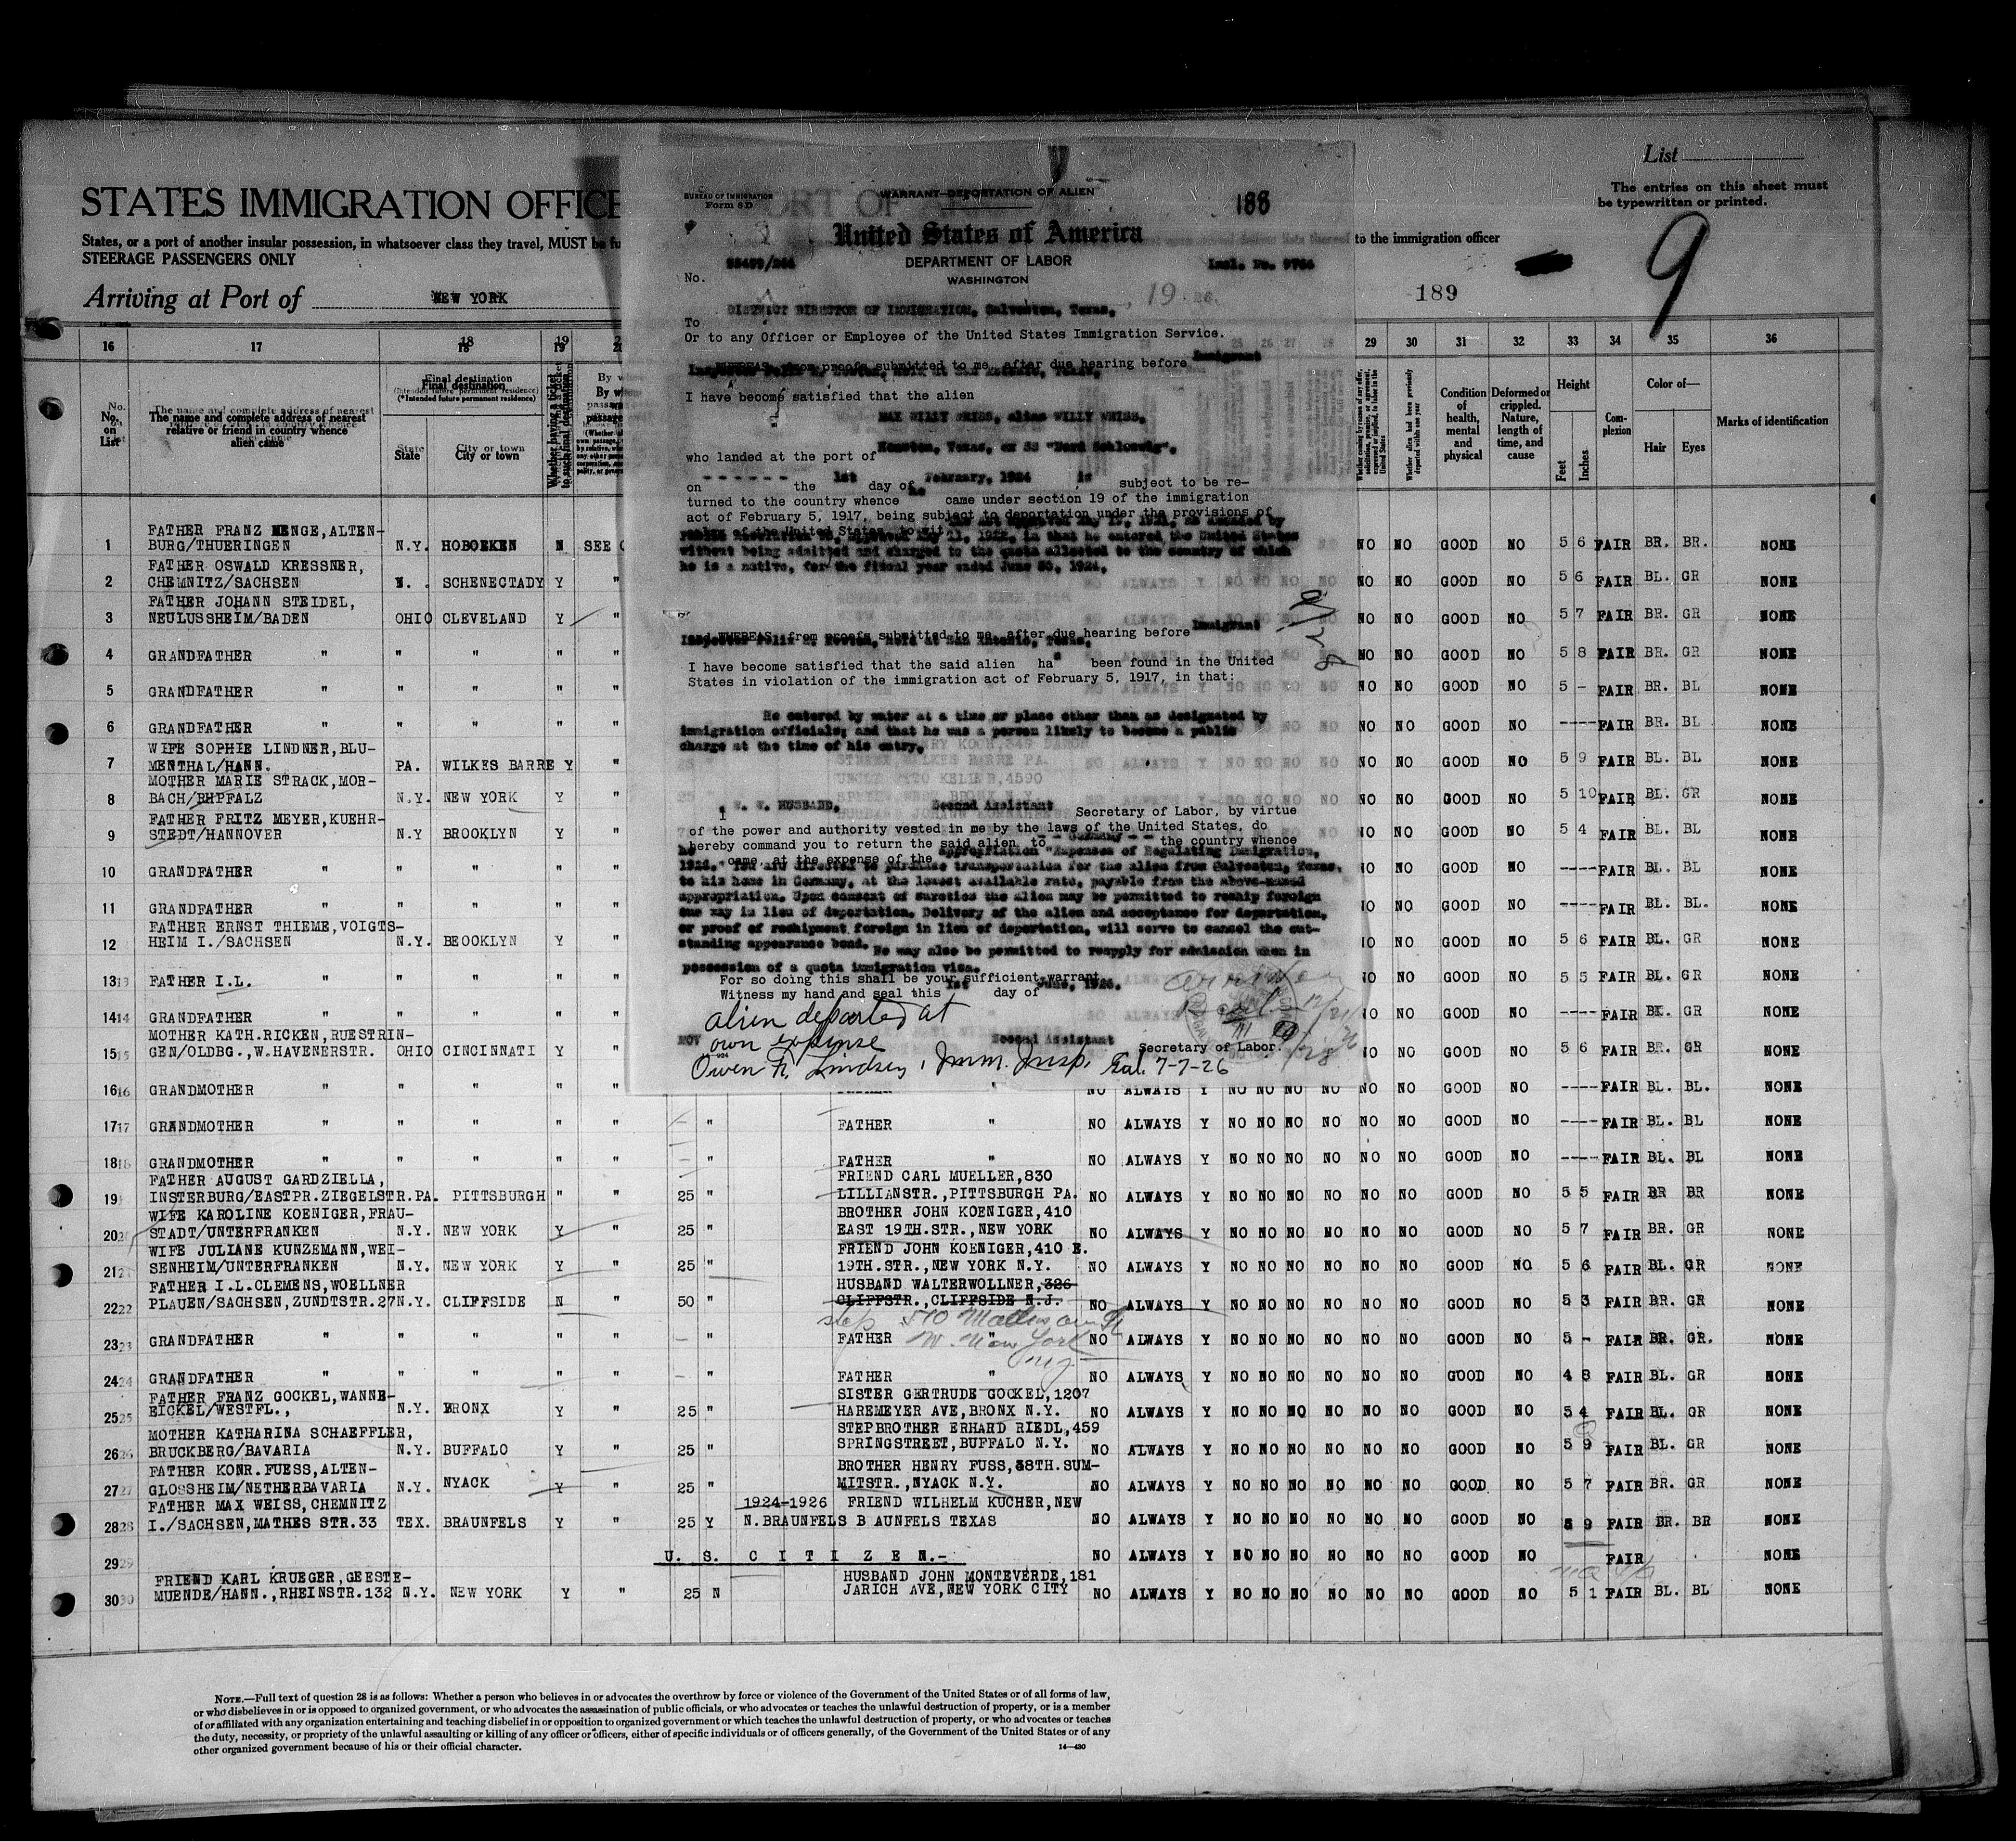 List
The entries on this sheet must
be typewritten or printed.
9
STATES IMMIGRATION OFFICE
States, or a port of another insular possession, in whatsoever class they travel, MUST be fu
to the immigration officer
STEERAGE PASSENGERS ONLY
Arriving at Port of NEW YORK
189
BUREAU OF IMMIGRATION
Form 8 D
WARRANT—DEPORTATION OF ALIEN
188
United States of America
DEPARTMENT OF LABOR
WASHINGTON
No.
Incl. No. 9764
, 19 26.
To DISTRICT DIRECTOR OF IMMIGRATION, Galveston, Texas,
Or to any Officer or Employee of the United States Immigration Service.
WHEREAS, from proofs submitted to me, after due hearing before Immigrant
I have become satisfied that the alien
MAX WILLY WEISS, alias WILLY WEISS,
who landed at the port of Houston, Texas, ex SS
on - - - - - - the 1st day of February, 1924 is subject to be re-
turned to the country whence he came under section 19 of the immigration
act of February 5, 1917, being subject to deportation under the provisions of
the act approved May 19, 1921, as amended by
in that he entered the United States
without being admitted and charged to the quota allotted to the country of which
he is a native, for the fiscal year ended June 30, 1924.
WHEREAS, from proofs submitted to me, after due hearing before Immigrant
Inspector Felix held at San Antonio, Texas,
I have become satisfied that the said alien has been found in the United
States in violation of the immigration act of February 5, 1917, in that:
He entered by water at a time or place other than as designated by
immigration officials; and that he was a person likely to become a public
charge at the time of his entry.
I W. W. HUSBAND, Second Assistant Secretary of Labor, by virtue
of the power and authority vested in me by the laws of the United States, do
hereby command you to return the said alien to - - Germany - - the country whence
he came, at the expense of the appropriation "Expenses of Regulating Immigration,
1926." You are directed to purchase transportation for the alien from Galveston, Texas,
to his home in Germany, at the lowest available rate, payable from the above-named
appropriation. Upon consent of sureties the alien may be permitted to reship foreign
one way in lieu of deportation. Delivery of the alien and acceptance for deportation,
or proof of reshipment foreign in lieu of deportation, will serve to cancel the out-
standing appearance bond. He may also be permitted to reapply for admission when in
possession of a quota immigration visa.
For so doing this shall be your sufficient warrant.
Witness my hand and seal this 1st day of June, 1926.
alien departed at
own expense
Second Assistant
Secretary of Labor.
Owen F. Lindsey, Imm. Insp. Gal. 7-7-26
16 17 18 19 29 30 31 32 33 34 35 36
No. on List
The name and complete address of nearest relative or friend in country whence alien came
Final destination
(*Intended future permanent residence)
State
City or town
Condition of health, mental and physical
Deformed or crippled. Nature, length of time, and cause
Height
Feet
Inches
Complexion
Color of—
Hair
Eyes
Marks of identification
FATHER FRANZ MENGE, ALTEN-
1 BURG/THUERINGEN N.Y. HOBOEKEN N SEE NO NO GOOD NO 5 6 FAIR BR. BR. NONE
FATHER OSWALD KRESSNER,
2 CHEMNITZ/SACHSEN N. . SCHENECTADY Y " NO NO GOOD NO 5 6 FAIR BL. GR NONE
FATHER JOHANN STEIDEL,
3 NEULUSSHEIM/BADEN OHIO CLEVELAND Y " NO NO GOOD NO 5 7 FAIR BR. GR NONE
4 GRANDFATHER " " " " " NO NO GOOD NO 5 8 FAIR BR. GR NONE
5 GRANDFATHER " " " " " NO NO GOOD NO 5 - FAIR BR. BL NONE
6 GRANDFATHER " " " " " NO NO GOOD NO ---- FAIR BR. BL NONE
WIFE SOPHIE LINDNER, BLU-
7 MENTHAL/HANN. PA. WILKES BARRE Y " NO NO GOOD NO 5 9 FAIR BL. BL NONE
MOTHER MARIE STRACK, MOR-
8 BACH/BHPFALZ N.Y. NEW YORK Y " NO NO GOOD NO 5 10 FAIR BL. GR NONE
FATHER FRITZ MEYER, KUEHR-
9 STEDT/HANNOVER N.Y BROOKLYN Y " NO NO GOOD NO 5 4 FAIR BL. BL NONE
10 GRANDFATHER " " " " " NO NO GOOD NO ---- FAIR BL. BL NONE
11 GRANDFATHER " " " " " NO NO GOOD NO ---- FAIR BL. BL. NONE
FATHER ERNST THIEME, VOIGTS-
12 HEIM I./SACHSEN N.Y. BEOOKLYN Y " NO NO GOOD NO 5 6 FAIR BL. GR NONE
13 FATHER I.L. " " " " " NO NO GOOD NO 5 5 FAIR BL. GR NONE
14 GRANDFATHER " " " " " NO NO GOOD NO ---- FAIR BL. GR NONE
MOTHER KATH.RICKEN, RUESTRIN-
15 GEN/OLDBG., W.HAVENERSTR. OHIO CINCINNATI Y " NO NO GOOD NO 5 6 FAIR BR. GR NONE
16 GRANDMOTHER " " " " " NO ALWAYS Y NO NO NO NO NO NO GOOD NO ---- FAIR BL. BL. NONE
17 GRANDMOTHER " " " " " — " FATHER " NO ALWAYS Y NO NO NO NO NO NO GOOD NO ---- FAIR BL. BL NONE
18 GRANDMOTHER " " " " " — " FATHER " NO ALWAYS Y NO NO NO NO NO NO GOOD NO ---- FAIR BL. BL NONE
FATHER AUGUST GARDZIELLA, FRIEND CARL MUELLER, 830
19 INSTERBURG/EASTPR.ZIEGELSTR. PA. PITTSBURGH " " 25 " LILLIANSTR., PITTSBURGH PA. NO ALWAYS Y NO NO NO NO NO NO GOOD NO 5 5 FAIR BR BR NONE
WIFE KAROLINE KOENIGER, FRAU- BROTHER JOHN KOENIGER, 410
20 STADT/UNTERFRANKEN N.Y. NEW YORK Y " 25 " EAST 19TH.STR., NEW YORK NO ALWAYS Y NO NO NO NO NO NO GOOD NO 5 7 FAIR BR. GR NONE
WIFE JULIANE KUNZEMANN, WEI- FRIEND JOHN KOENIGER, 410 E.
21 SENHEIM/UNTERFRANKEN N.Y. NEW YORK Y " 25 " 19TH.STR., NEW YORK N.Y. NO ALWAYS Y NO NO NO NO NO NO GOOD NO 5 6 FAIR BL. GR NONE
FATHER I.L.CLEMENS, WOELLNER HUSBAND WALTERWOLLNER, 326
22 PLAUEN/SACHSEN, ZUNDTSTR.27 N.Y. CLIFFSIDE N " 50 " CLIFFSTR., CLIFFSIDE N.J. NO ALWAYS Y NO NO NO NO NO NO GOOD NO 5 3 FAIR BR. GR NONE
23 GRANDFATHER " " " " " — " FATHER " NO ALWAYS Y NO NO NO NO NO NO GOOD NO 5 - FAIR BR. GR. NONE
24 GRANDFATHER " " " " " - " FATHER " NO ALWAYS Y NO NO NO NO NO NO GOOD NO 4 8 FAIR BL. GR NONE
FATHER FRANZ GOCKEL, WANNE- SISTER GERTRUDE GOCKEL, 1207
25 EICKEL/WESTFL., N.Y. BRONX Y " 25 " HAREMEYER AVE, BRONX N.Y. NO ALWAYS Y NO NO NO NO NO NO GOOD NO 5 4 FAIR BL. GR NONE
MOTHER KATHARINA SCHAEFFLER, STEPBROTHER ERHARD RIEDL, 459
26 BRUCKBERG/BAVARIA N.Y. BUFFALO Y " 25 " SPRINGSTREET, BUFFALO N.Y. NO ALWAYS Y NO NO NO NO NO NO GOOD NO 5 9 FAIR BL. GR NONE
FATHER KONR.FUESS, ALTEN- BROTHER HENRY FUSS, 38TH.SUM-
27 GLOSSHEIM/NETHERBAVARIA N.Y. NYACK Y " 25 " MITSTR., NYACK N.Y. NO ALWAYS Y NO NO NO NO NO NO GOOD NO 5 7 FAIR BR. GR NONE
FATHER MAX WEISS, CHEMNITZ 1924-1926 FRIEND WILHELM KUCHER, NEW
28 I./SACHSEN, MATHES STR.33 TEX. BRAUNFELS Y " 25 Y N.BRAUNFELS B AUNFELS TEXAS NO ALWAYS Y NO NO NO NO NO NO GOOD NO 5 9 FAIR BR. BR NONE
29 U. S. C I T I Z E N.- NO ALWAYS Y NO NO NO NO NO NO GOOD NO FAIR NONE
FRIEND KARL KRUEGER, GEESTE- HUSBAND JOHN MONTEVERDE, 181
30 MUENDE/HANN., RHEINSTR.132 N.Y. NEW YORK Y " 25 N JARICH AVE, NEW YORK CITY NO ALWAYS Y NO NO NO NO NO NO GOOD NO 5 1 FAIR BL. BL NONE
NOTE.—Full text of question 28 is as follows: Whether a person who believes in or advocates the overthrow by force or violence of the Government of the United States or of all forms of law,
or who disbelieves in or is opposed to organized government, or who advocates the assassination of public officials, or who advocates or teaches the unlawful destruction of property, or is a member
of or affiliated with any organization entertaining and teaching disbelief in or opposition to organized government or which teaches the unlawful destruction of property, or who advocates or teaches
the duty, necessity, or propriety of the unlawful assaulting or killing of any officer or officers, either of specific individuals or of officers generally, of the Government of the United States or of any
other organized government because of his or their official character.
14—430